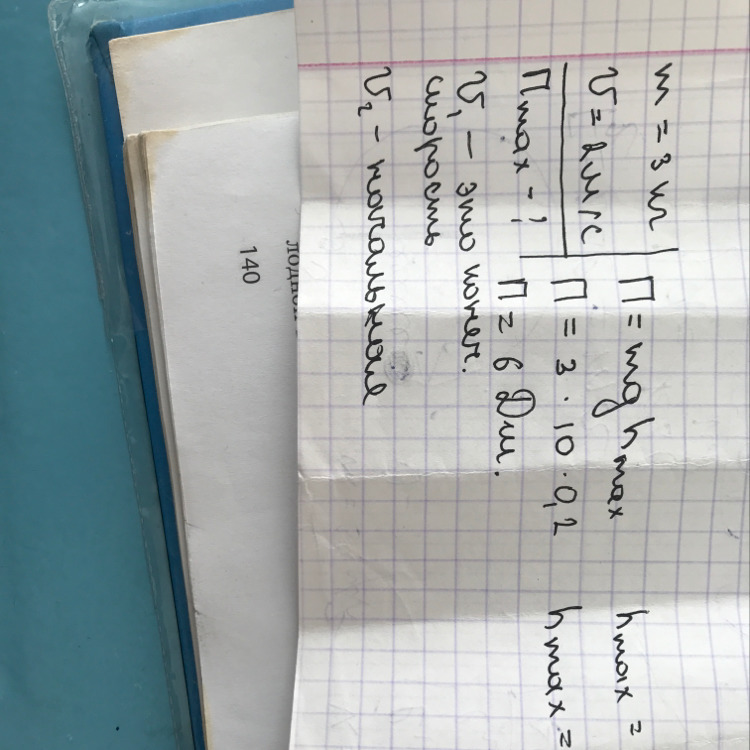 m = 3 кг
V = 2 м/с
Пmax - ?
П = mg hmax
П = 3 · 10 · 0,2
П = 6 Дж.
hmax =
hmax =
V₁ – это конеч.
скорость
V₂ – начальная
140